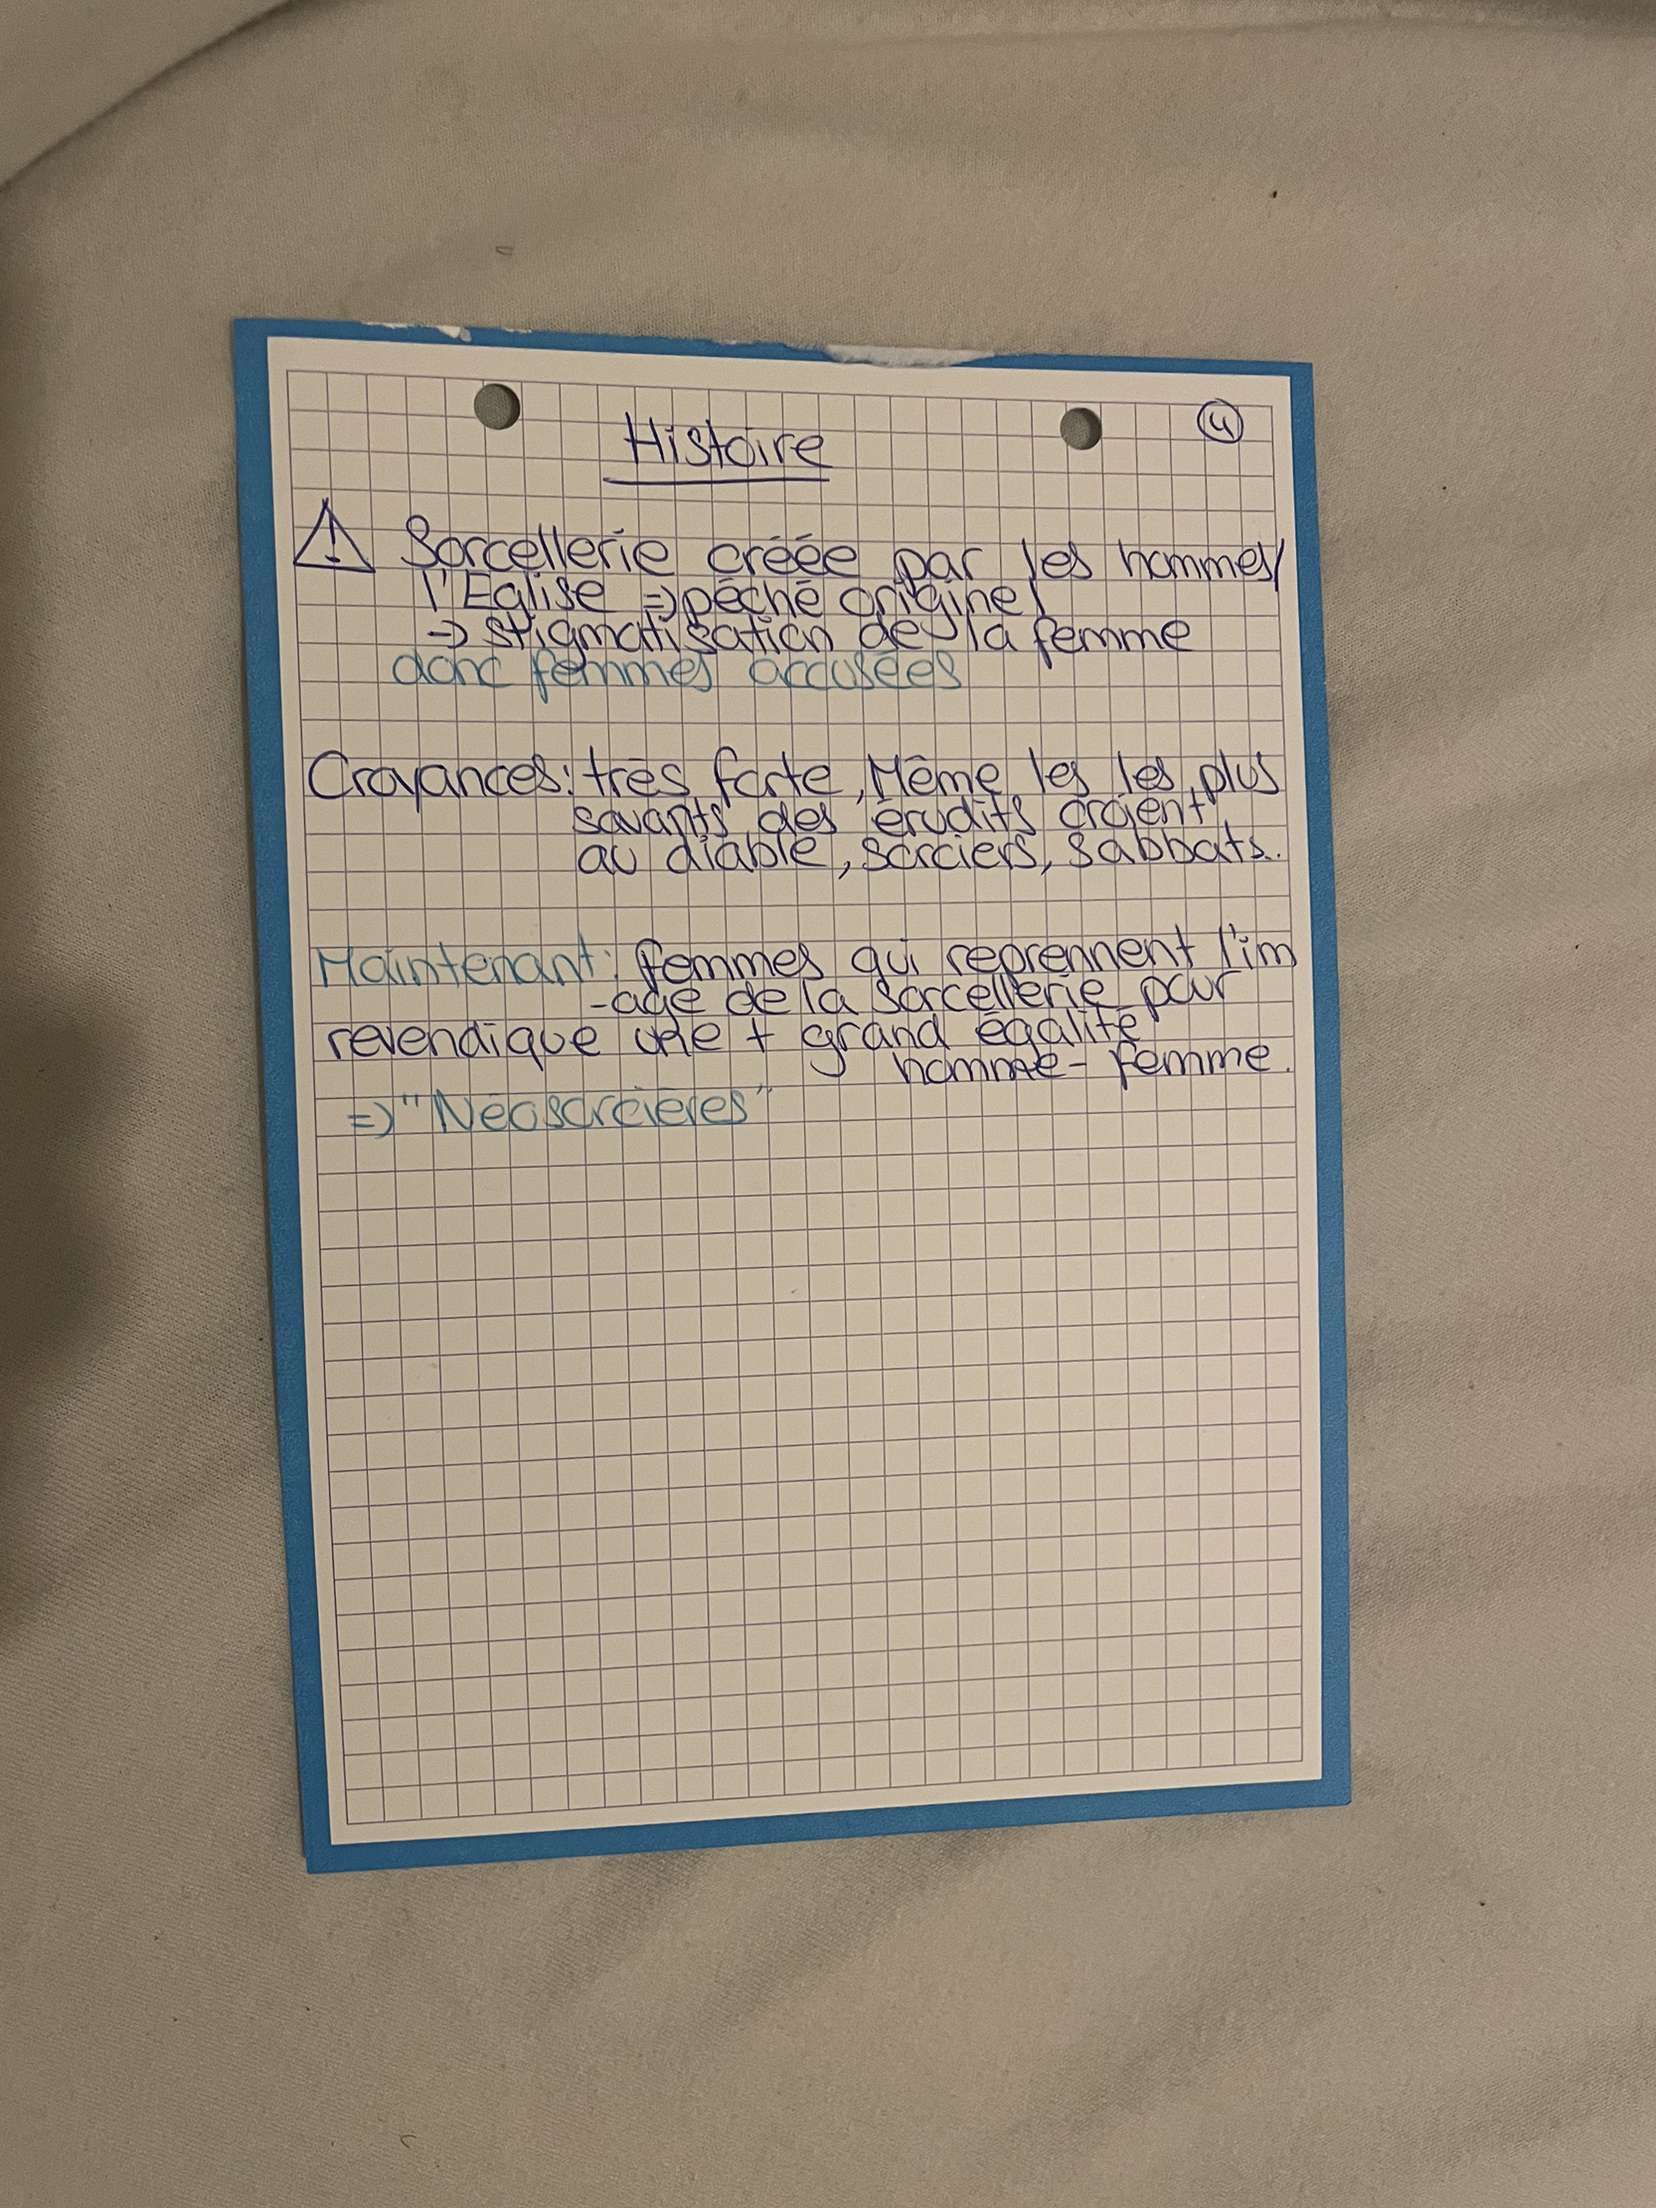 Histoire
④
⚠ Sorcellerie créée par les hommes/
l'Eglise => péché originel
-> stigmatisation de la femme
donc femmes accusées
Croyances: très forte, Même les les plus
savants, des érudits croient
au diable, sorciers, sabbats.
Maintenant: femmes qui reprennent l'im
-age de la sorcellerie pour
revendique une + grand égalité
homme - femme.
=> "Néosorcières"